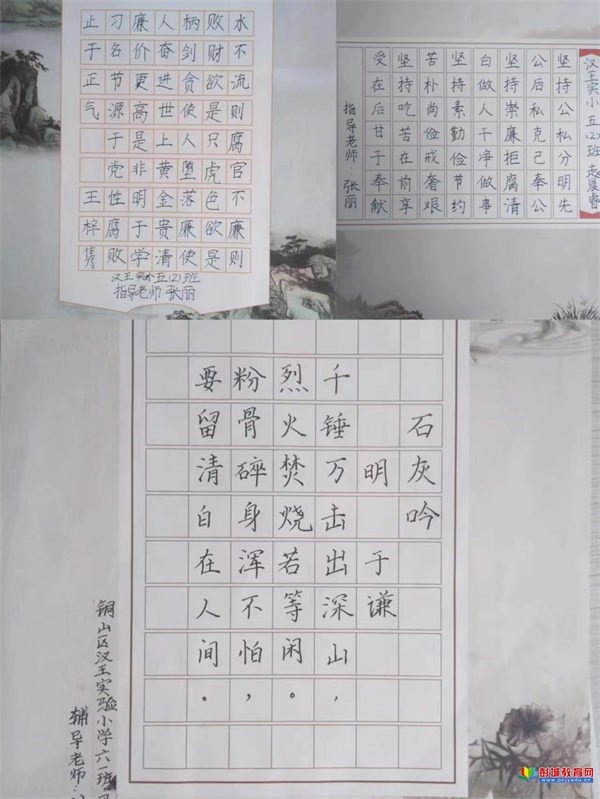 水不流则腐官不廉则
败财欲是只虎色欲是
柄剑贪使人堕落廉使
人奋进世上黄金贵清
廉价更高是非明于学
习名节源于党性腐败
止于正气 王梓
汉王实小五(2)班
指导老师:张丽
汉王实小五(2)班 赵晨睿
坚持公私分明先
公后私克己奉公
坚持崇廉拒腐清
白做人干净做事
坚持素勤俭节约
苦朴尚俭戒奢艰
坚持吃苦在前享
受在后甘于奉献
指导老师:张丽
石灰吟
明 于谦
千锤万击出深山,
烈火焚烧若等闲。
粉骨碎身浑不怕,
要留清白在人间。
铜山区汉王实验小学六一班
辅导老师:
彭城教育网
www.pzjyedu.cn